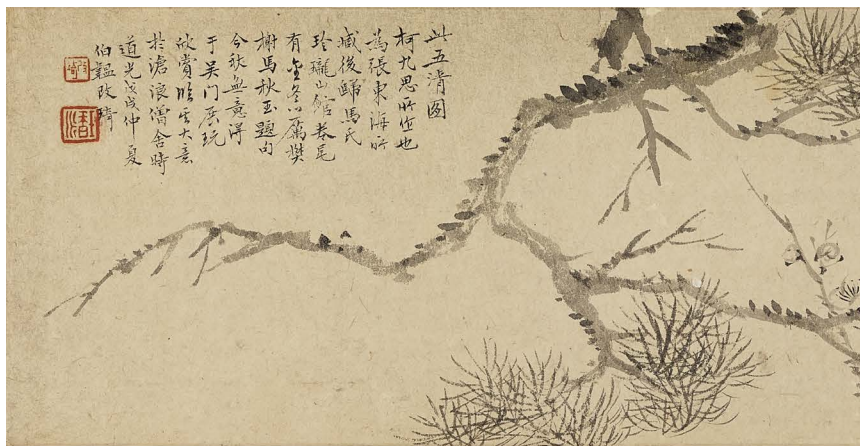 此五清图
柯九思所作也
為張東海所
藏後歸馬氏
玲瓏山館卷尾
有金冬心厲樊
榭馬秋玉題句
今秋無意得
于吴门展玩
欣賞臨其大意
於滄浪僧舍時
道光戊戌仲夏
伯韞改琦